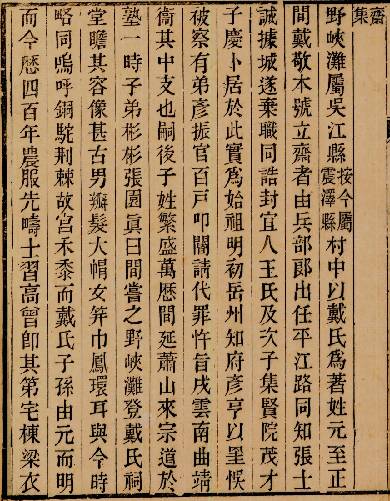 齋集
野峽灘屬吳江縣按今屬震澤縣村中以戴氏爲著姓元至正
間戴敬本號立齋者由兵部郎出任平江路同知張士
誠據城遂棄職同誥封宜人王氏及次子集賢院茂才
子慶卜居於此實爲始祖明初岳州知府彥亨以里悞
被察有弟彥振官百戸叩闕請代罪忤旨戍雲南曲靖
衞其中支也嗣後子姓繁盛萬厯間延蕭山來宗道於
塾一時子弟彬彬張園眞曰間嘗之野峽灘登戴氏祠
堂瞻其容像甚古男辮髮大帽女笄巾鳳環耳與今時
略同嗚呼銅駝荆棘故宫禾黍而戴氏子孫由元而明
而今厯四百年農服先疇士習高曾卽其第宅棟梁衣